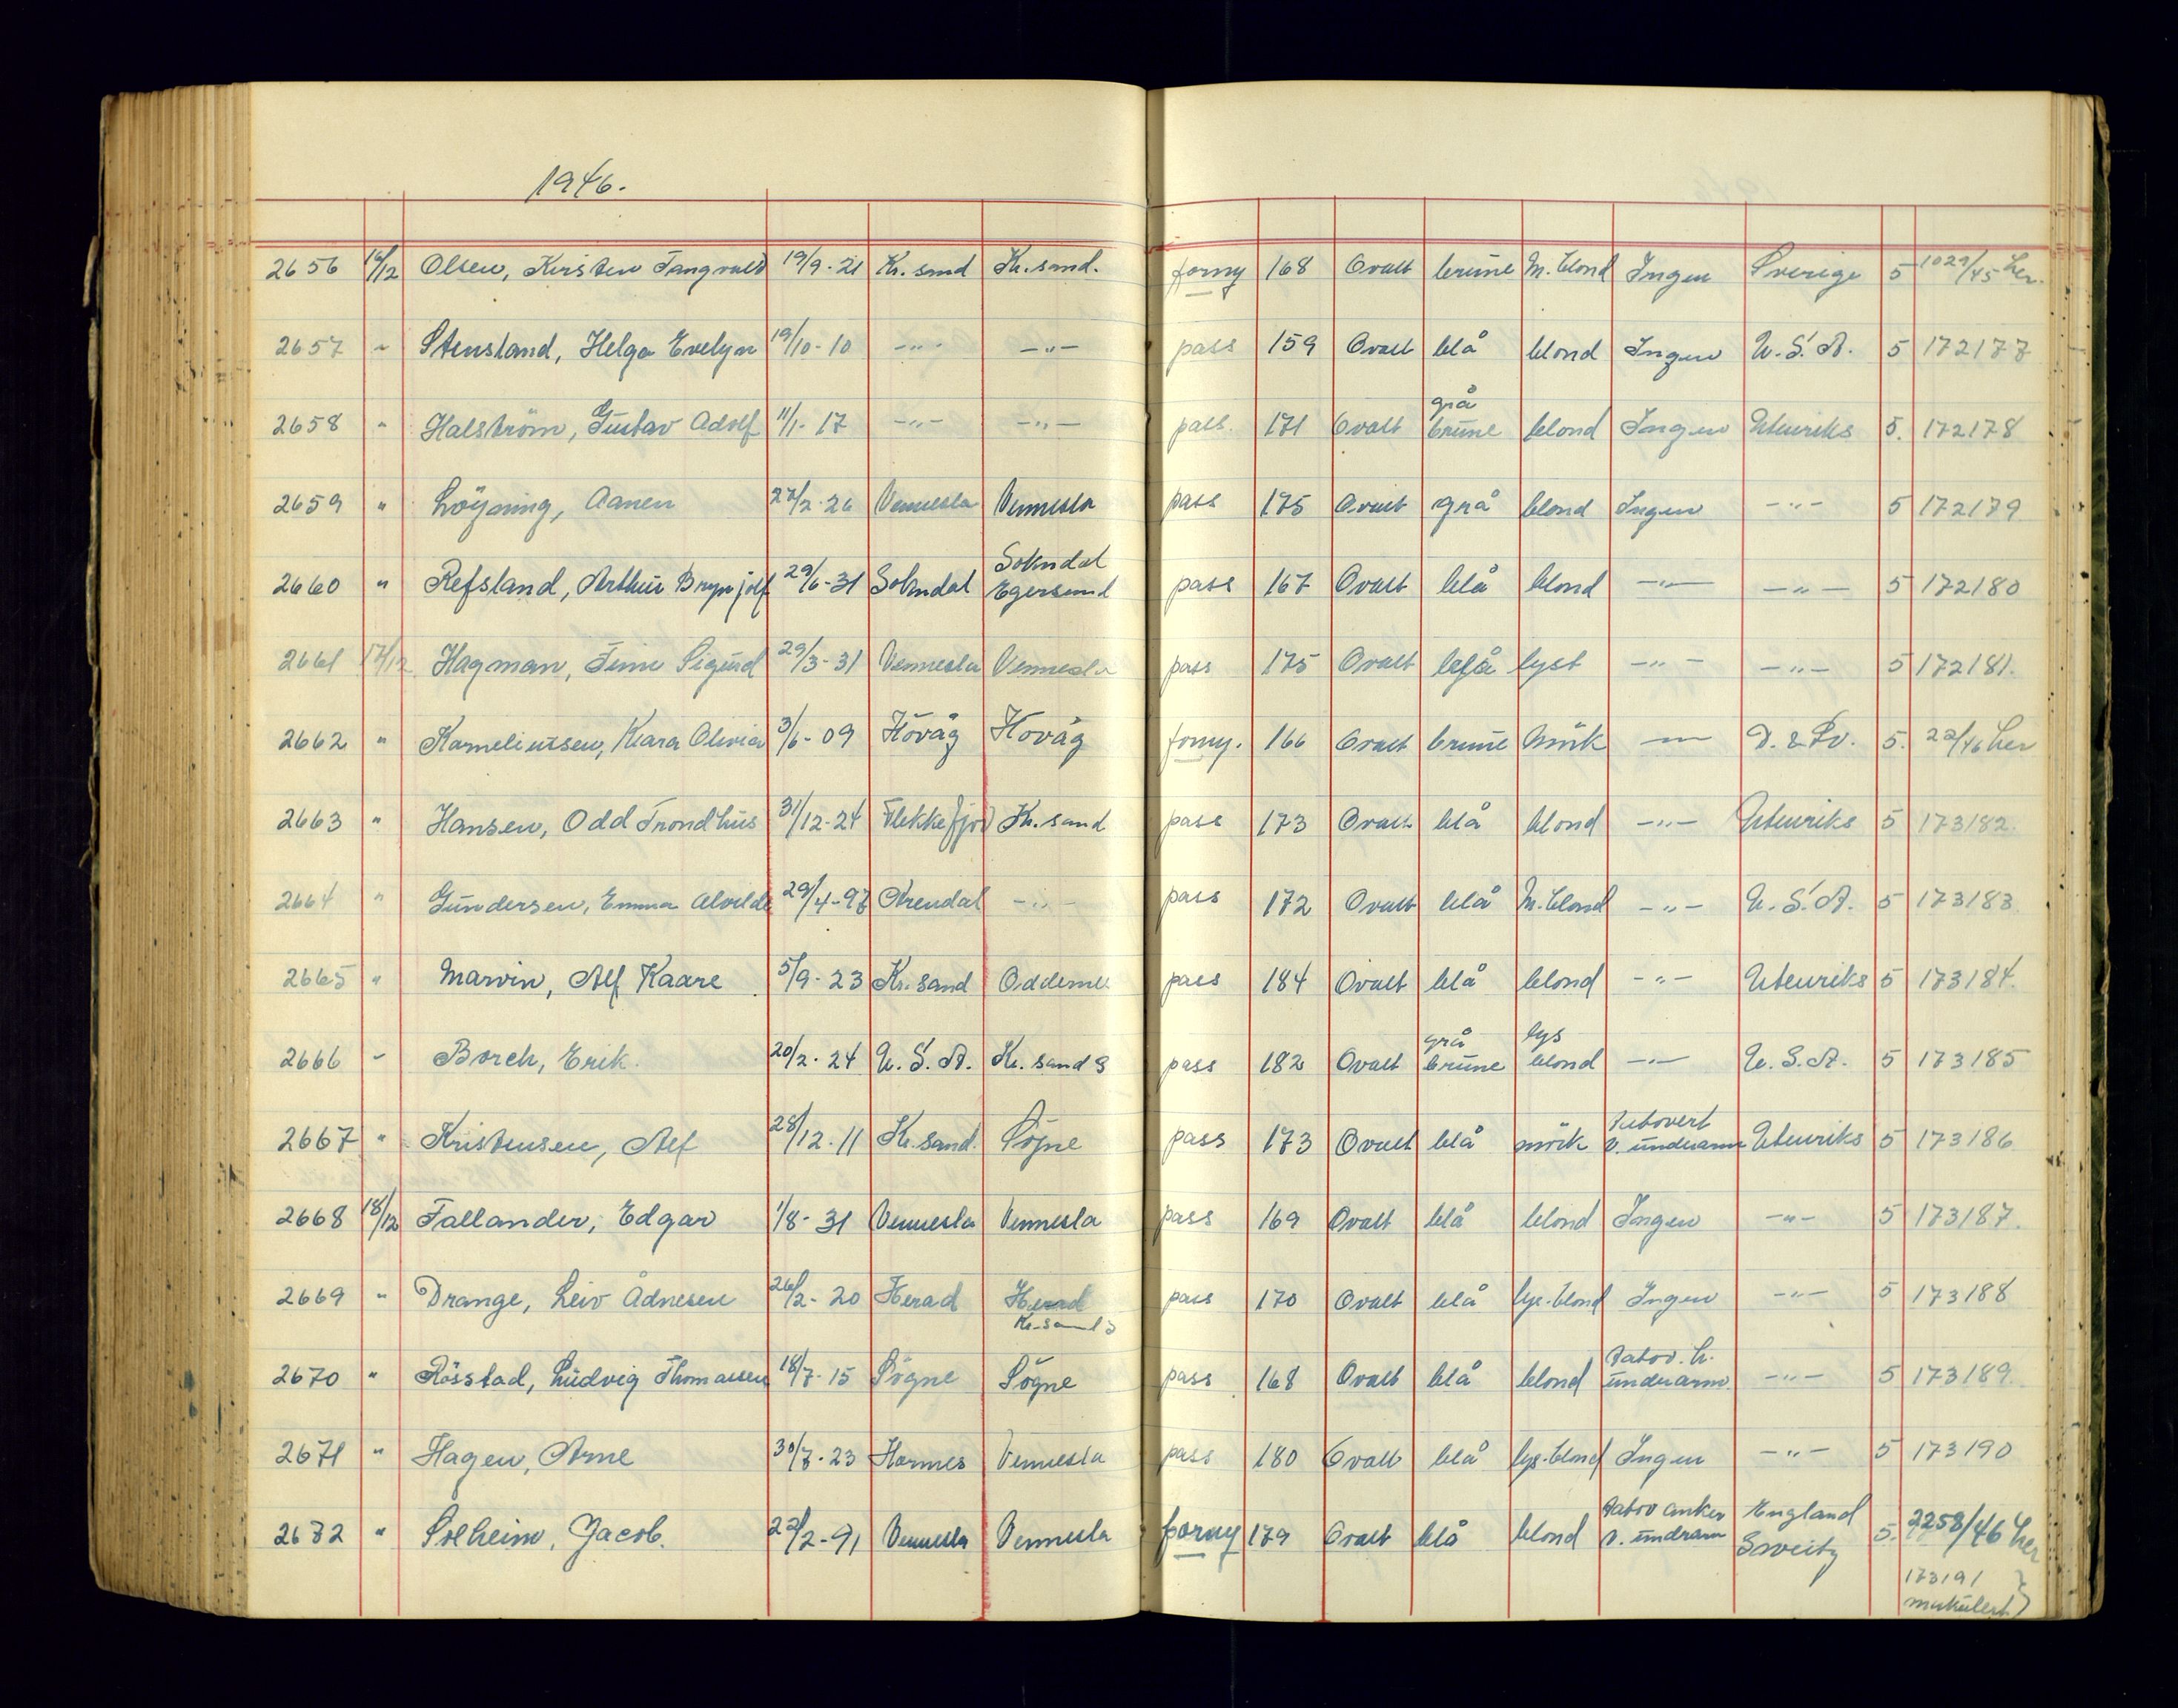 1946.
2656 16/12 Olsen, Kirsten Tangvald 19/9-21 Kr.sand Kr.sand. forny 168 Ovalt brune M.blond Ingen Sverige 5 1029/45 her.
2657 " Stensland, Helga Evelyn 19/10-10 -"- -"- pass 159 Ovalt blå blond Ingen U.S.A. 5 172177
grå
2658 " Halström, Gustav Adolf 11/1-17 -"- -"- pass. 171 Ovalt brune blond Ingen Utenriks 5. 172178
2659 " Löyning, Aanen 27/2-26 Vennesla Vennesla pass 175 Ovalt grå blond Ingen -"- 5 172179
Sokndal
2660 " Refsland, Arthur Brynjolf 29/6-31 Sokndal Egersund pass 167 Ovalt blå blond -"- -"- 5 172180
2661 17/12 Hagman, Finn Sigurd 29/3-31 Vennesla Vennesla pass 175 Ovalt blå lyst -"- -"- 5 172181.
2662 " Korneliussen, Klara Olivia 3/6-09 Hövåg Hövåg forny. 166 Ovalt brune Mörk -"- D. & Sv. 5. 22/46 her
2663 " Hansen, Odd Trondhus 31/12-24 Flekkefjord Kr.sand pass 173 Ovalt blå blond -"- Utenriks 5 173182.
2664 " Gundersen, Emma Alvilde 29/4-97 Arendal -"- pass 172 Ovalt blå M.blond -"- U.S.A. 5 173183
2665 " Marvin, Alf Kaare 5/9-23 Kr.sand Oddernes pass 184 Ovalt blå blond -"- Utenriks 5 173184.
grå lys
2666 " Borch, Erik. 20/2-24 U.S.A. Kr.sand S pass 182 Ovalt brune blond -"- U.S.A. 5 173185
Tatovert
2667 " Kristensen, Alf 28/12-11 Kr.sand. Sögne pass 173 Ovalt blå mörk v. underarm Utenriks 5 173186
2668 18/12 Fallander, Edgar 1/8-31 Vennesla Vennesla pass 169 Ovalt blå blond Ingen -"- 5 173187.
2669 " Drange, Leiv Ådnesen 26/2-20 Herad Herad pass 170 Ovalt blå lys-blond Ingen -"- 5 173188
Kr.sand S
Tatov. h.
2670 " Rösstad, Ludvig Thomassen 18/7-15 Sögne Sögne pass 168 Ovalt blå blond underarm. -"- 5 173189.
2671 " Hagen, Arne 30/7-23 Hornnes Vennesla pass 180 Ovalt blå lys-blond Ingen -"- 5 173190
Tatov anker England
2672 " Solheim, Jacob. 22/2-91 Vennesla Vennesla forny 179 Ovalt blå blond v. undrarm Sweitz 5. 2258/46 her
173191
makulert